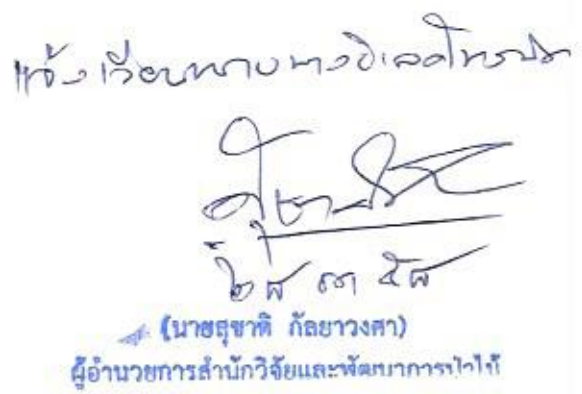 แจ้งเวียนทางอิเลคโทรนิค
(นายสุชาติ กัลยาวงศา)
ผู้อำนวยการสำนักวิจัยและพัฒนาการป่าไม้